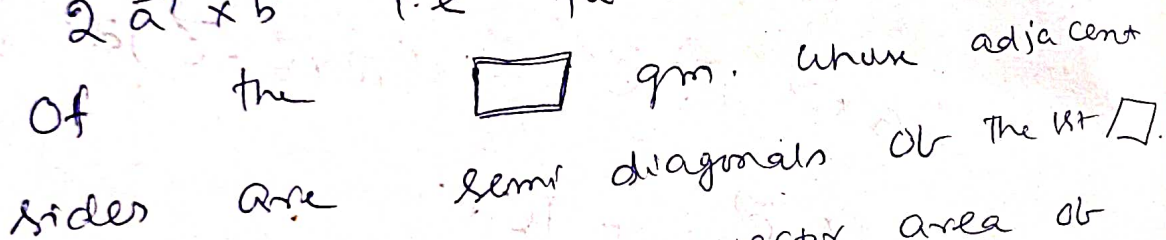 2. a × b
Of the ▭ gm. whose adjacent
sides are semi diagonals of the 1st ▱.
area of